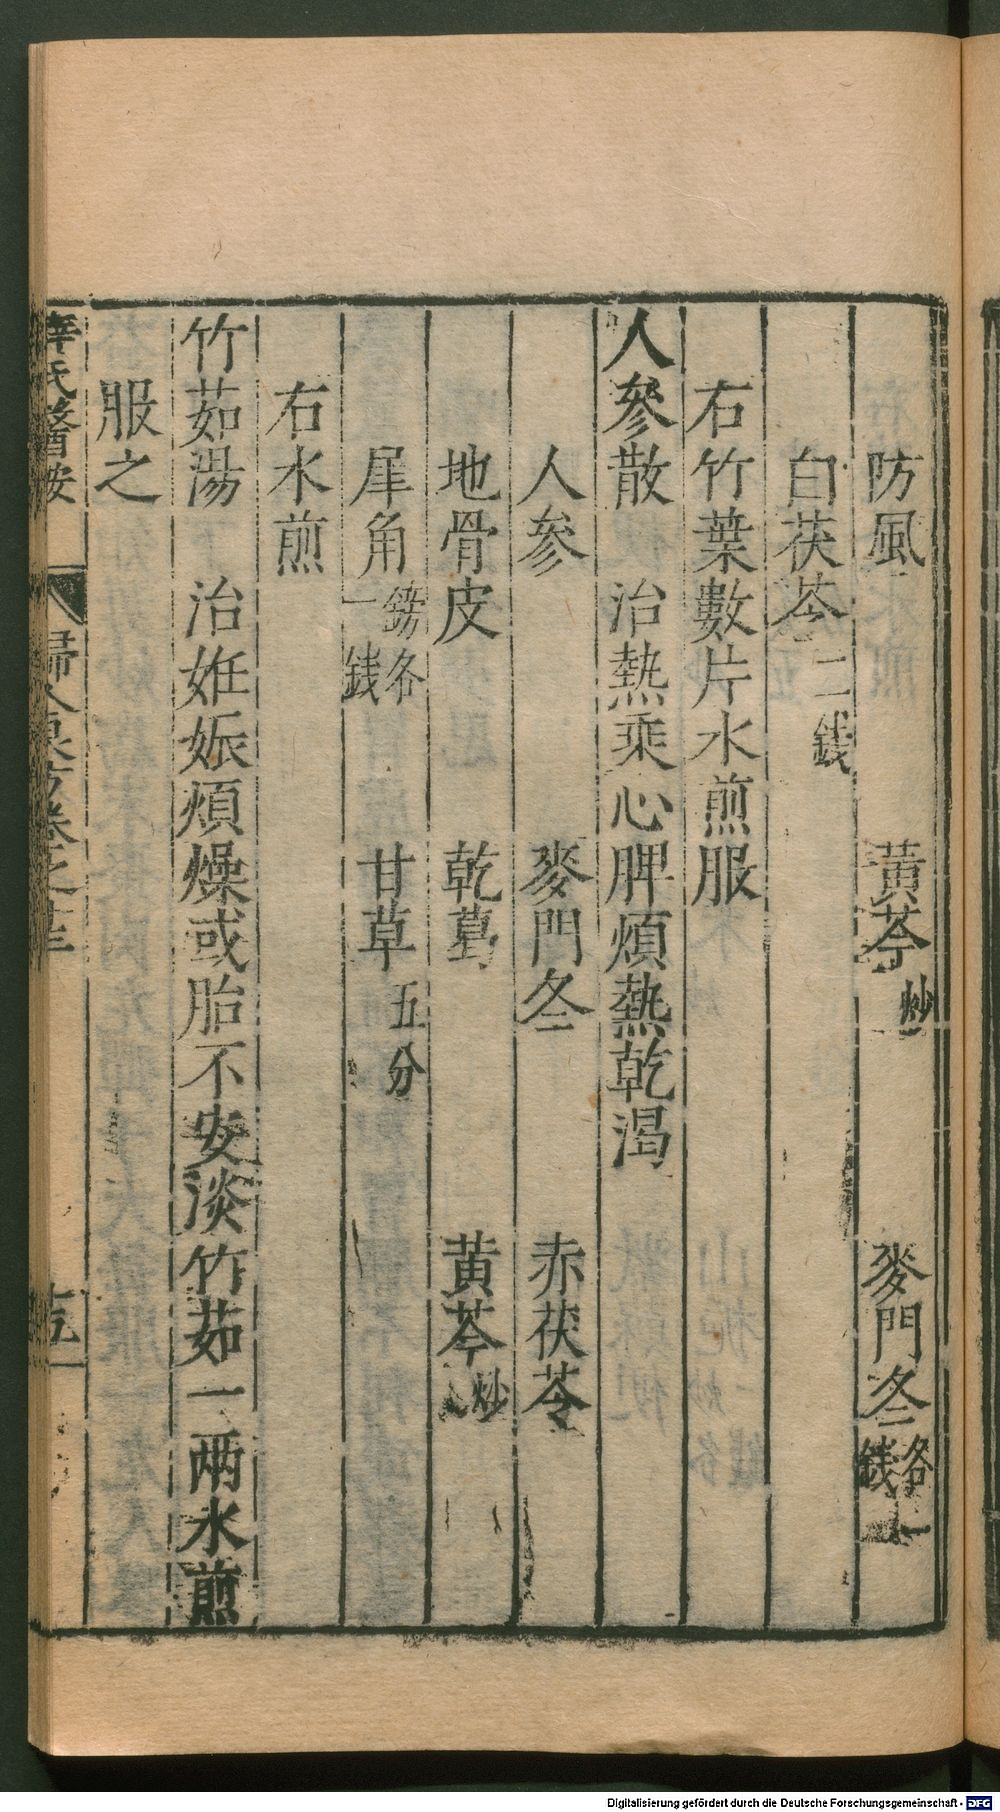 防風　黄芩炒　麥門冬各一錢
白茯苓二錢
右竹葉數片水煎服
人參散　治熱乘心脾煩熱乾渴
人參　麥門冬　赤茯苓
地骨皮　乾葛　黄芩炒
犀角鎊各一錢　甘草五分
右水煎
竹茹湯　治姙娠煩燥或胎不安淡竹茹一兩水煎
服之
薛氏醫按　婦人良方卷之十三
Digitalisierung gefördert durch die Deutsche Forschungsgemeinschaft - DFG